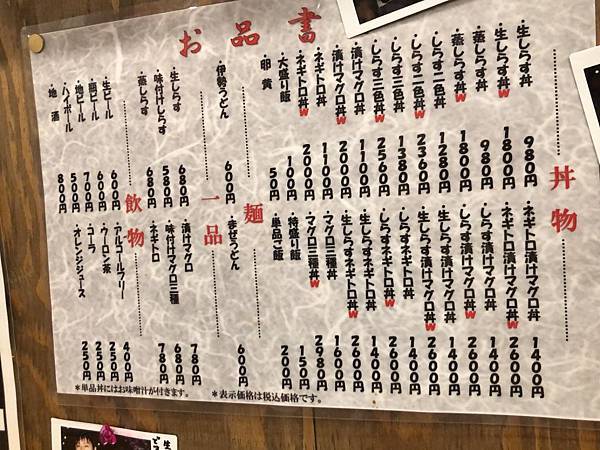 お品書
丼物
・生しらす丼 980円
・生しらす丼W 1800円
・蒸しらす丼 980円
・蒸しらす丼W 1800円
・しらす二色丼 1280円
・しらす二色丼W 2360円
・しらす三色丼 1380円
・しらす三色丼W 2560円
・漬けマグロ丼 1100円
・漬けマグロ丼W 2000円
・ネギトロ丼 1100円
・ネギトロ丼W 2000円
・大盛り飯 100円
・卵黄 50円
・ネギトロ漬けマグロ丼 1400円
・ネギトロ漬けマグロ丼W 2600円
・しらす漬けマグロ丼 1400円
・しらす漬けマグロ丼W 2600円
・生しらす漬けマグロ丼 1400円
・生しらす漬けマグロ丼W 2600円
・しらすネギトロ丼 1400円
・しらすネギトロ丼W 2600円
・生しらすネギトロ丼 1400円
・生しらすネギトロ丼W 2600円
・マグロ三種丼 1600円
・マグロ三種丼W 2980円
・特盛り飯 150円
・単品ご飯 200円
麺
・伊勢うどん 600円
・まぜうどん 600円
一品
・生しらす 680円
・味付けしらす 580円
・蒸しらす 680円
・漬けマグロ 780円
・味付けマグロ三種 680円
・ネギトロ 780円
飲物
・生ビール 600円
・瓶ビール 600円
・地ビール 700円
・ハイボール 500円
・地酒 800円
・アルコールフリー 400円
・ウーロン茶 250円
・コーラ 250円
・オレンジジュース 250円
＊単品丼にはお味噌汁が付きます。
＊表示価格は税込価格です。